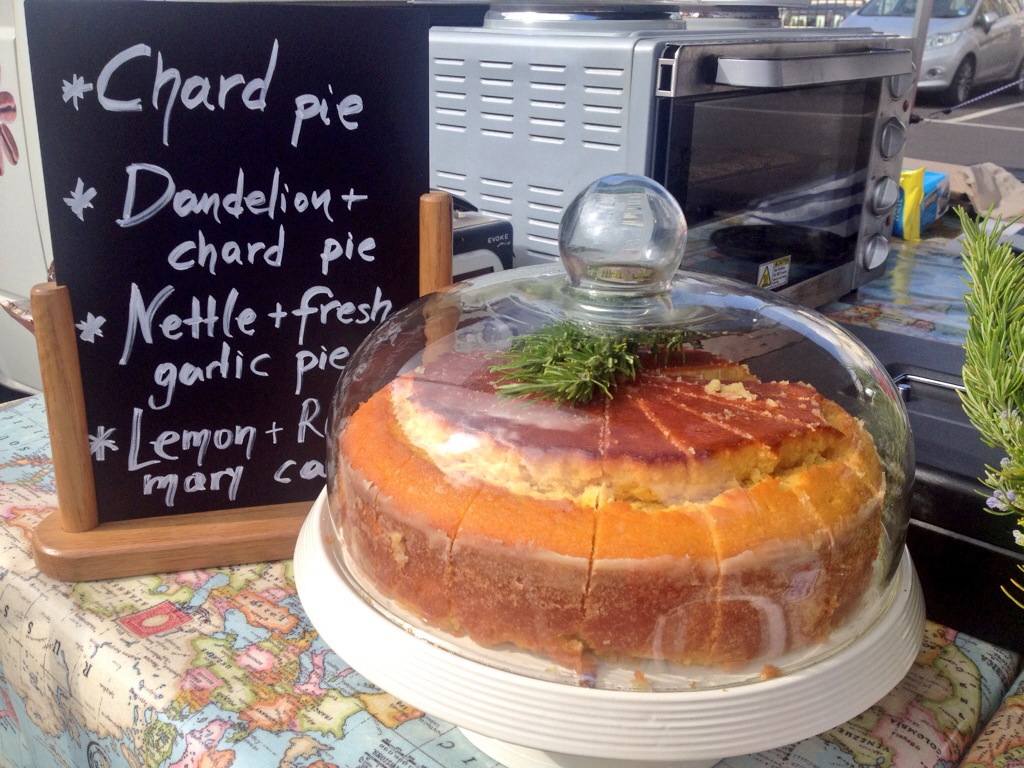 *Chard pie
* Dandelion +
chard pie
* Nettle + fresh
garlic pie
* Lemon + R
mary ca
EVOKE
VENEZUE
COLOMBIA